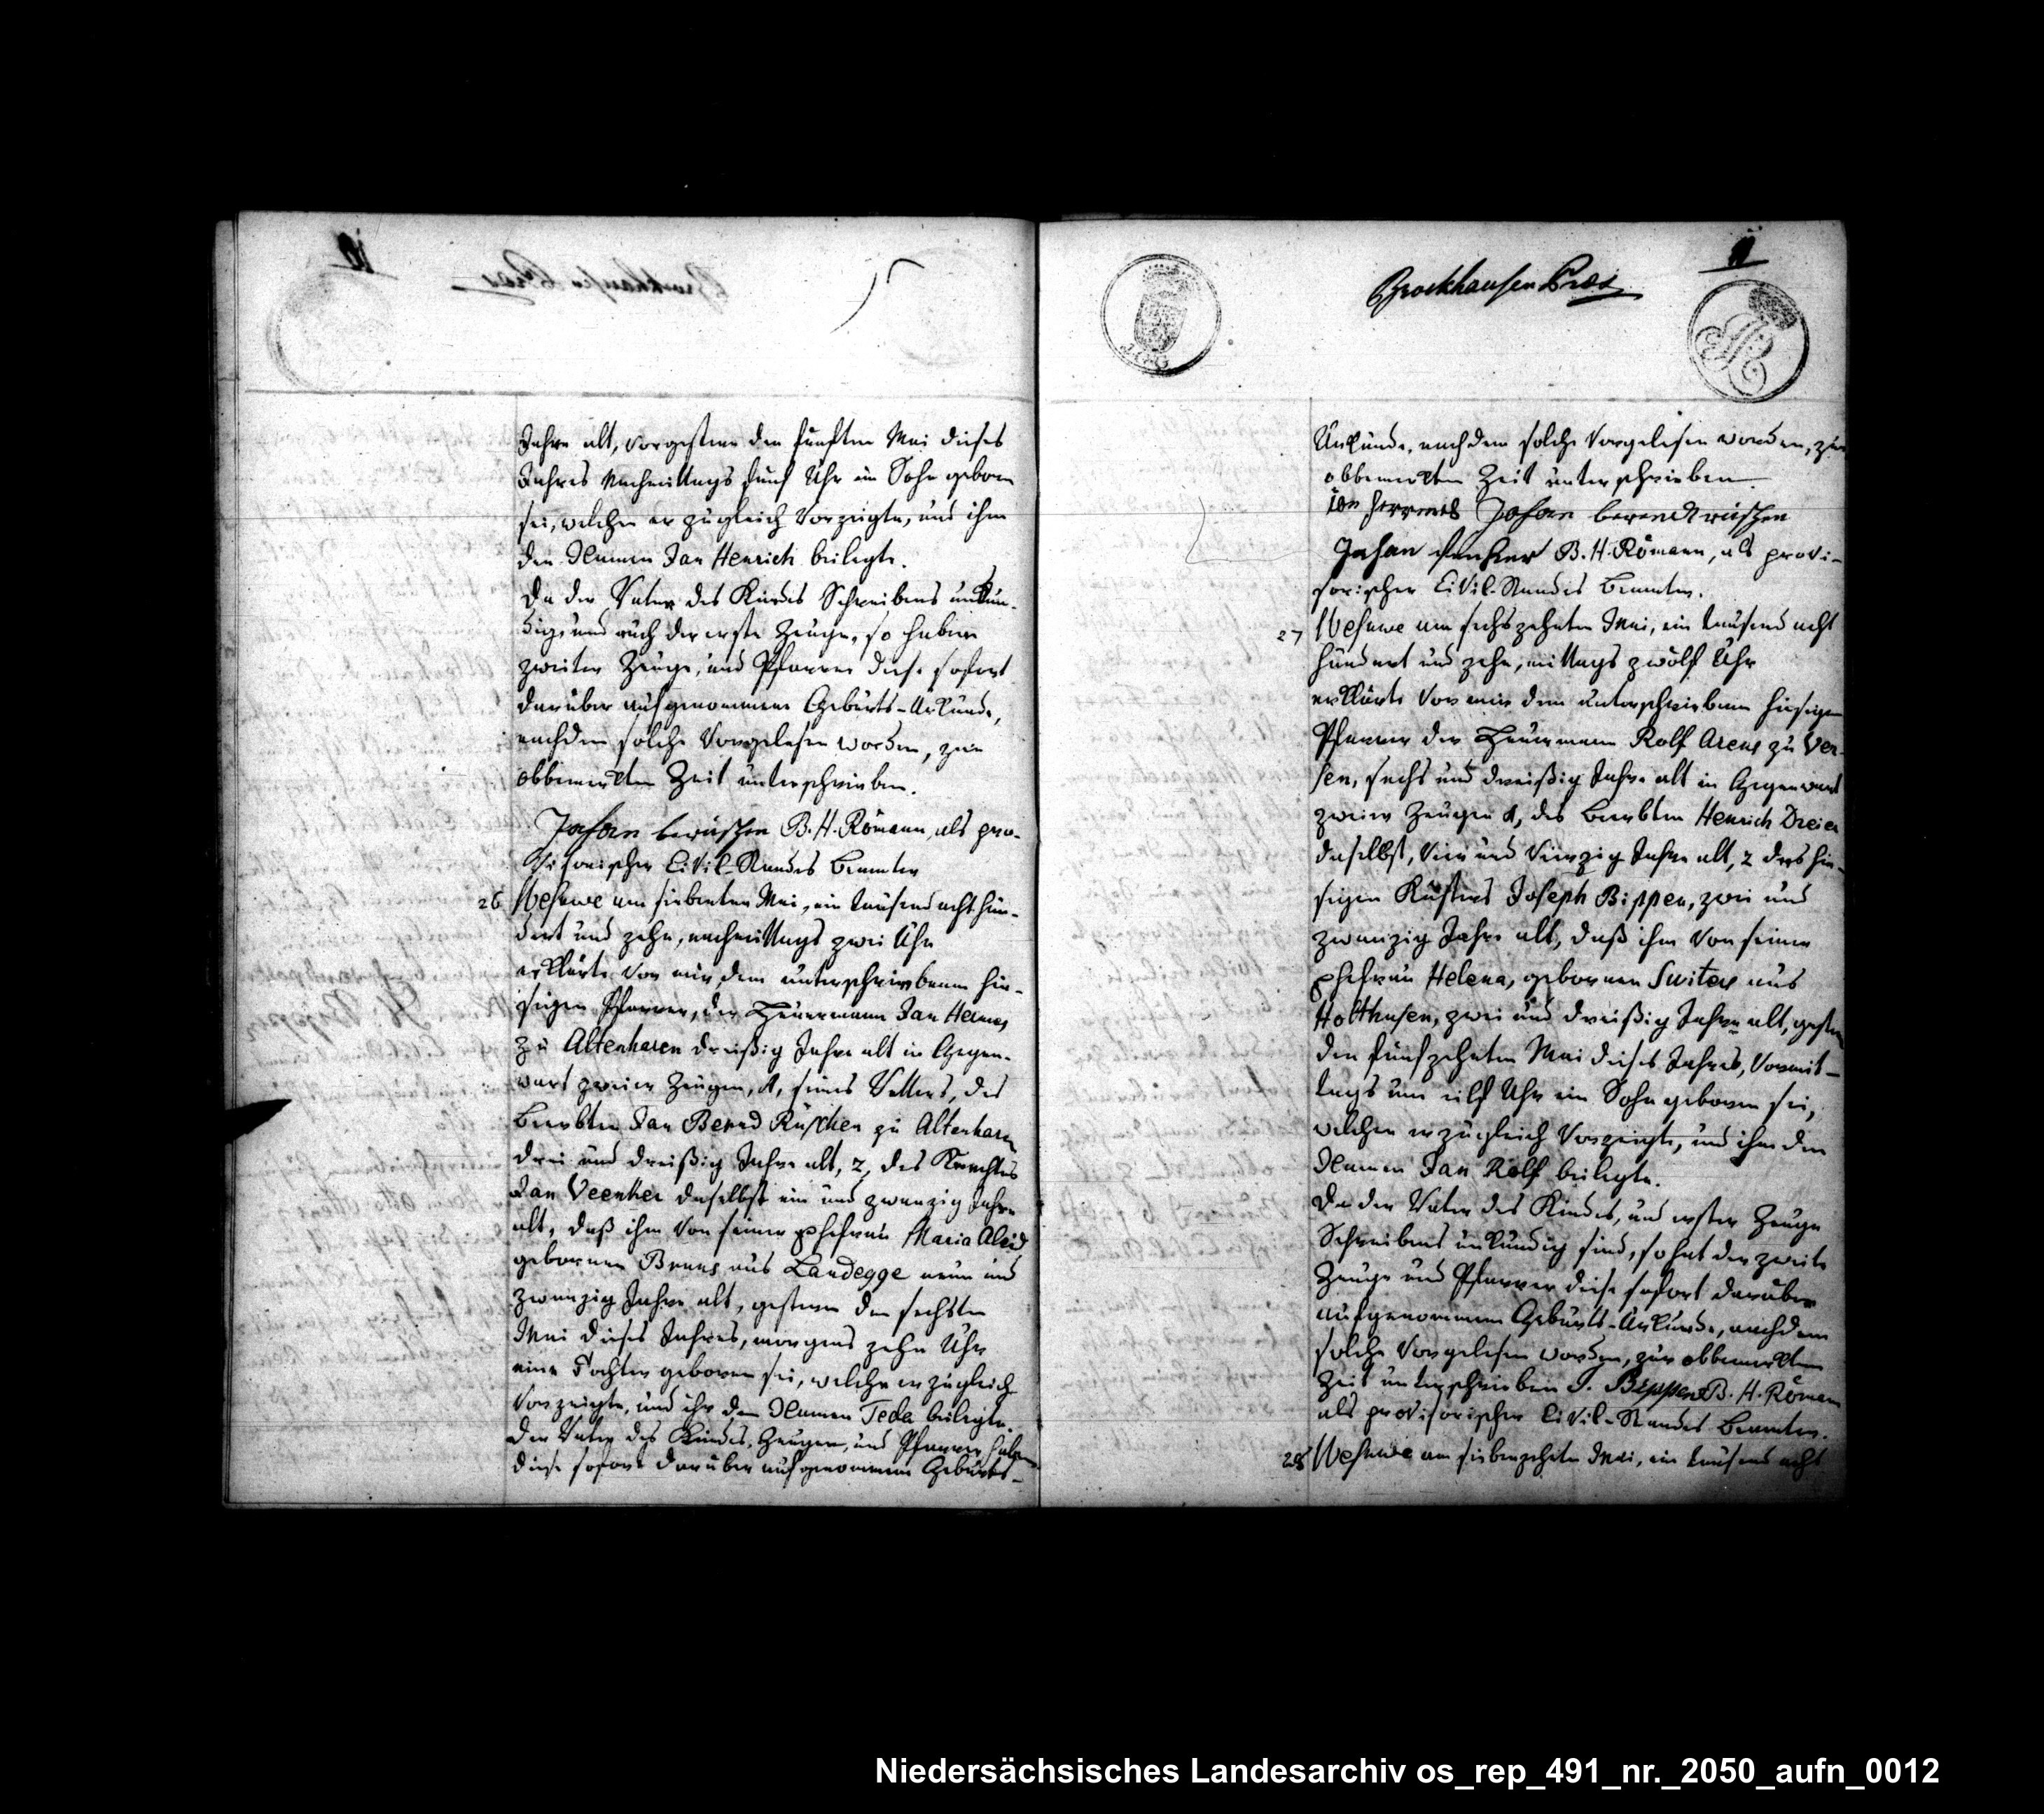 Jahre alt, vorgestern den fünften Mai dieses
Jahres Nachmittags fünf Uhr ein Sohn geboren
sei, welchen er zugleich vorzeigte, und ihm
den Namen Jan Henrich beilegte.
Da der Vater des Kindes Schreibens unkün-
dig, und auch der erste Zeuge, so haben
zweiter Zeuge, und Pfarrer diese sofort
darüber aufgenommene Geburts-Urkunde,
nachdem solche vorgelesen worden, zur
obbemerkten Zeit unterschrieben.
Johan berüschen B. H. Römann, als pro-
visorischer Civil-Standes Beamter
26 Wesuwe am siebenten Mai, ein tausend acht hun-
dert und zehn, nachmittags zwei Uhr
erklärte vor mir dem unterschriebenen hie-
sigen Pfarrer, der Heuermann Jan Hermes
zu Altenharen dreißig Jahre alt in Gegen-
wart zweier Zeugen, 1, seines Vetters, des
Beerbten Jan Bernd Rüschen zu Altenharen
drei und dreißig Jahre alt, 2, des Knechtes
Jan Veenker daselbst ein und zwanzig Jahre
alt, daß ihm von seiner Ehefrau Maria Aleid
gebornen Bruns aus Landegge neun und
zwanzig Jahre alt, gestern den sechsten
Mai dieses Jahres, morgens zehn Uhr
eine Tochter geboren sei, welche er zugleich
vorzeigte, und ihr den Namen Teda beilegte.
Der Vater des Kindes, Zeugen, und Pfarrer haben
diese sofort darüber aufgenommene Geburts-
11
Brockhausen Präs
J.G.G
Urkunde, nachdem solche vorgelesen worden, zur
obbemerkten Zeit unterschrieben.
Jan Hermes Johan berendt rüschen
Johan fenker B. H. Römann, als provi-
sorischer Civil-Standes Beamter.
27 Wesuwe am sechszehnten Mai, ein tausend acht
hundert und zehn, mittags zwölf Uhr
erklärte vor mir dem unterschriebenen hiesigen
Pfarrer der Heuermann Rolf Arens zu Ver-
sen, sechs und dreißig Jahre alt in Gegenwart
zweier Zeugen 1, des Beerbten Henrich Dreier
daselbst, vier und vierzig Jahre alt, 2 des hie-
sigen Küsters Joseph Bippen, zwei und
zwanzig Jahre alt, daß ihm von seiner
Ehefrau Helena, gebornen Suiters aus
Holthusen, zwei und dreißig Jahre alt, gestern
den fünfzehnten Mai dieses Jahres, vormit-
tags um eilf Uhr ein Sohn geboren sei,
welchen er zugleich vorzeigte, und ihm den
Namen Jan Rolf beilegte.
Da der Vater des Kindes, und erster Zeuge
Schreibens unkundig sind, so hat der zweite
Zeuge und Pfarrer diese sofort darüber
aufgenommene Geburts-Urkunde, nachdem
solche vorgelesen worden, zur obbemerkten
Zeit unterschrieben J. Bippen B. H. Römann
als provisorischer Civil-Standes Beamter.
28 Wesuwe am siebenzehnten Mai, ein tausend acht
Niedersächsisches Landesarchiv os_rep_491_nr._2050_aufn_0012